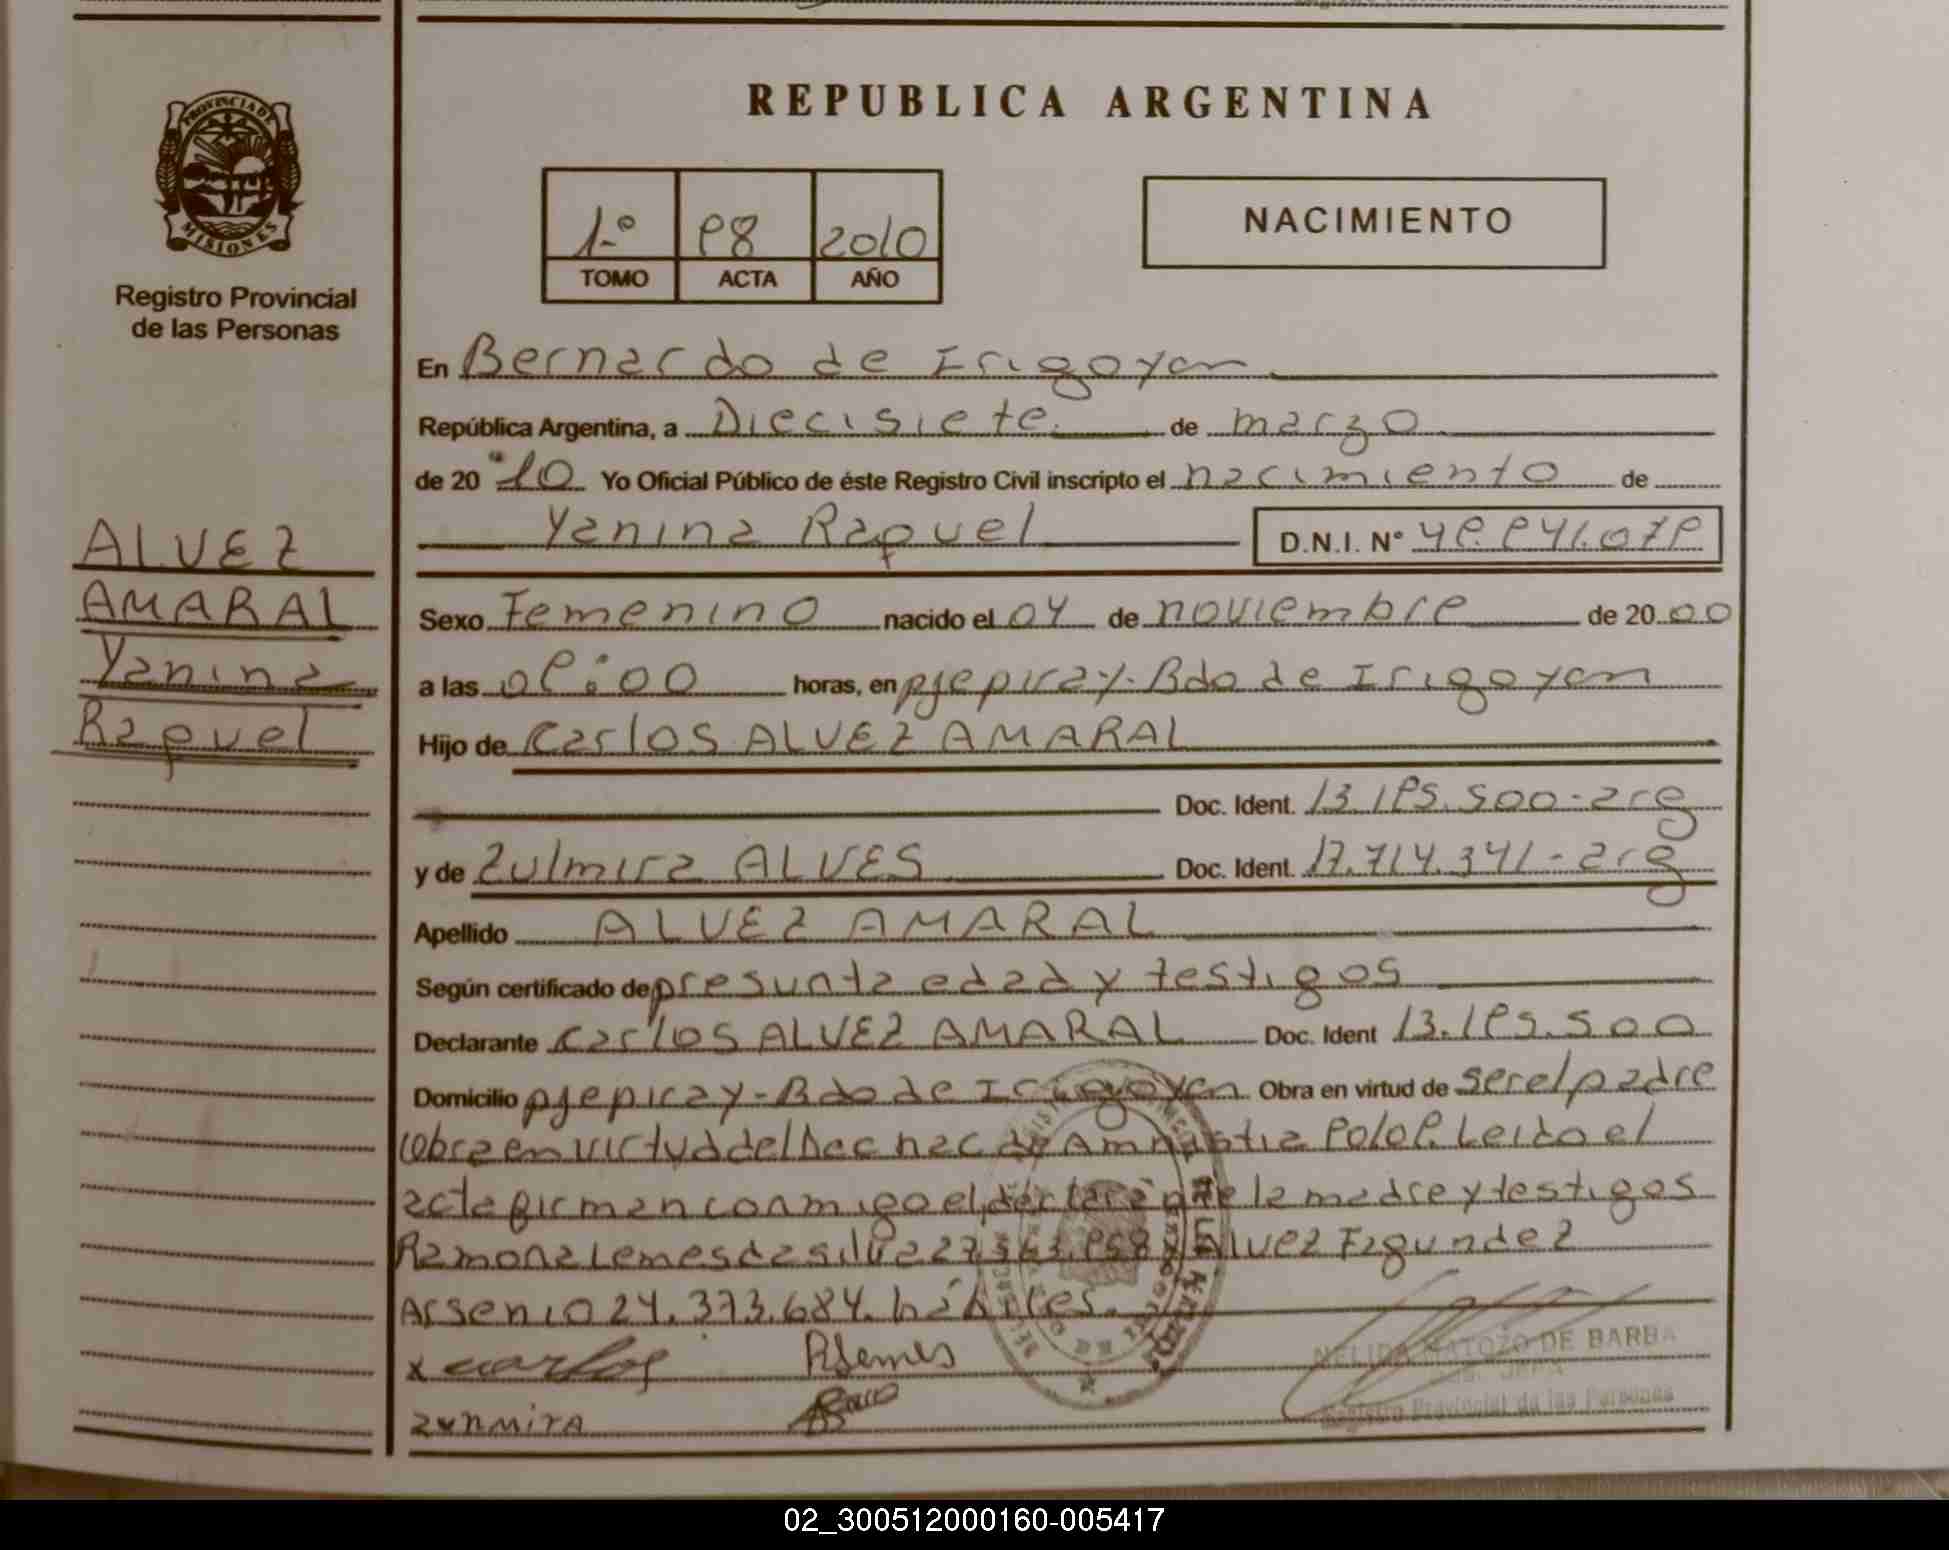 PROVINCIA DE
MISIONES
Registro Provincial
de las Personas
ALVEZ
AMARAL
Yanina
Raquel
REPUBLICA ARGENTINA
1º 98 2010
TOMO ACTA AÑO
NACIMIENTO
En Bernardo de Irigoyen
República Argentina, a Diecisiete de marzo
de 20 10 Yo Oficial Público de éste Registro Civil inscripto el nacimiento de
Yanina Raquel D.N.I. Nº 49.941.079
Sexo Femenino nacido el 04 de noviembre de 20 00
a las 09:00 horas, en pjepiray-Bdo de Irigoyen
Hijo de Carlos ALVEZ AMARAL
Doc. Ident. 13.195.500-arg
y de Zulmira ALVES Doc. Ident. 17.714.341-arg
Apellido ALVEZ AMARAL
Según certificado de presunta edad y testigos
Declarante Carlos ALVEZ AMARAL Doc. Ident 13.195.500
Domicilio pjepiray-Bdo de Irigoyen Obra en virtud de ser el padre
Obra en virtud del Dec nac de Amnistia 90/09. Leido el
acta firman conmigo el declarante la madre y testigos
Ramona Lemes da silva 27.363.958 y Alvez Fagundez
Arsenio 24.373.684. hábiles.
x carlos RLemes
zunmira
NELIDA MATOZO DE BARBA
Registro Provincial de las Personas
02_300512000160-005417